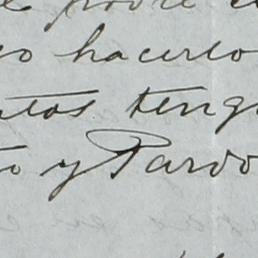 e podré e
so hacerlo
ntos teng
to y Pardo